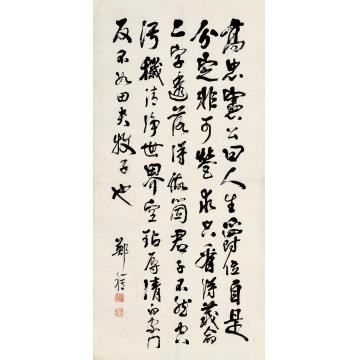 高忠憲公曰人生爵位自是
分定非可營求只看得義命
二字透落得做箇君子不然空
污穢清淨世界空玷辱清白家門
反不如田夫牧子也
鄭